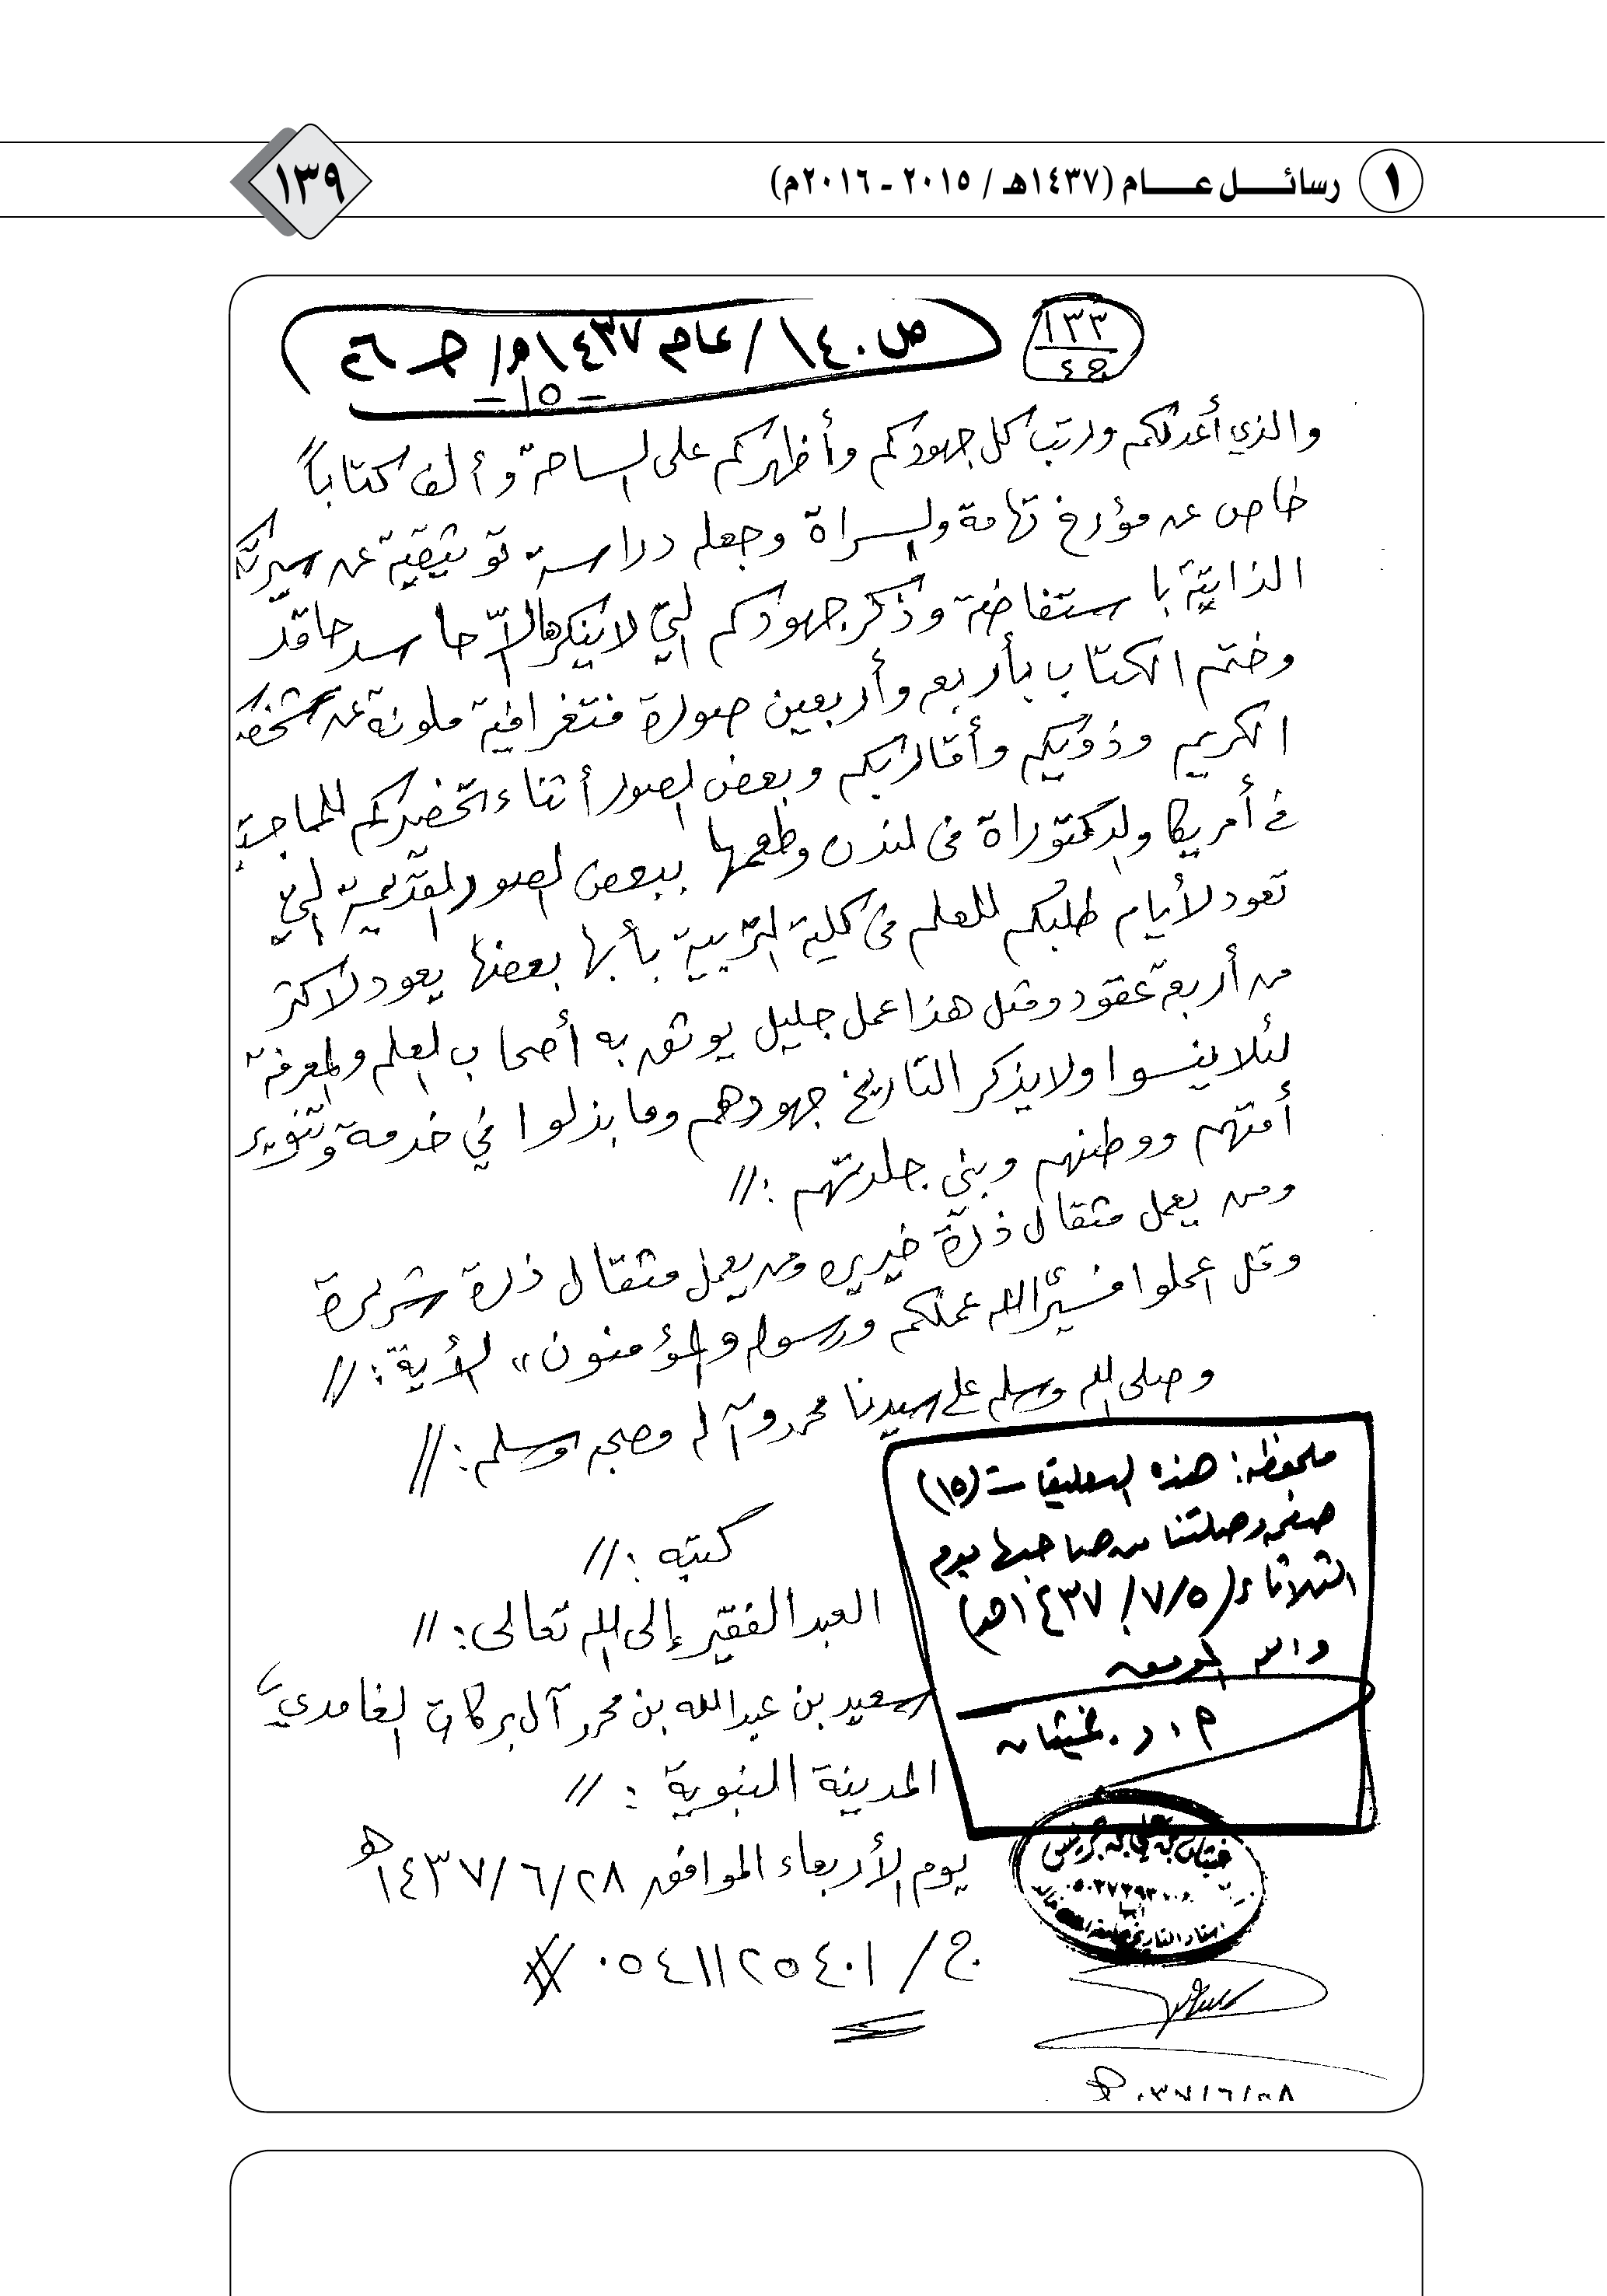 ١ رسائل عام (١٤٣٧هـ / ٢٠١٥ - ٢٠١٦م)
١٣٩
١٣٣
ص ١٤٠ / عام ١٤٣٧هـ /
- ١٥ -
والذي أعد لكم ورتب كل جهودكم وأظهركم على الساحة وألف كتاباً
خاص عن مؤرخ تهامة والسراة وجعله دراسة توثيقية عن سيرتكم
الذاتية باستفاضة وذكر جهودكم التي لا ينكرها إلاّ حاسد حاقد
وختم الكتاب بأربعه وأربعين صورة فتغرافية ملونة عن شخصكم
الكريم وذويكم وأقاربكم وبعض الصور أثناء تحضيركم للماجستير
في أمريكا والدكتوراة في لندن وطعمها ببعض الصور القديمة التي
تعود لأيام طلبكم للعلم في كلية التربية بأبها بعضها يعود لاكثر
من أربعة عقود ومثل هذا عمل جليل يوثق به أصحاب العلم والمعرفة
لئلا ينسوا ولا يذكر التاريخ جهودهم وما بذلوا في خدمة وتنوير
أمتهم ووطنهم وبني جلدتهم : //
ومن يعمل مثقال ذرة خير يره ومن يعمل مثقال ذرة شر يرة
وقل اعملوا فسيرى الله عملكم ورسوله والمؤمنون ،، الأية : //
وصلى الله وسلم على سيدنا محمد وآله وصحبه وسلم : //
ملحوظة : هذه التعليقات (١٥)
صفحة وصلتنا من صاحبها يوم
الثلاثاء (١٤٣٧/٧/٥هـ)
والله الموفق
أ.د. غيثان
كتبه : //
العبد الفقير إلى الله تعالى : //
سعيد بن عبدالله بن محمد آل بركات الغامدي
المدينة النبوية : //
يوم الأربعاء الموافق ١٤٣٧/٦/٢٨هـ
ج / ٠٥٤١١٢٥٤٠١
غيثان بن علي بن جريس
أبها